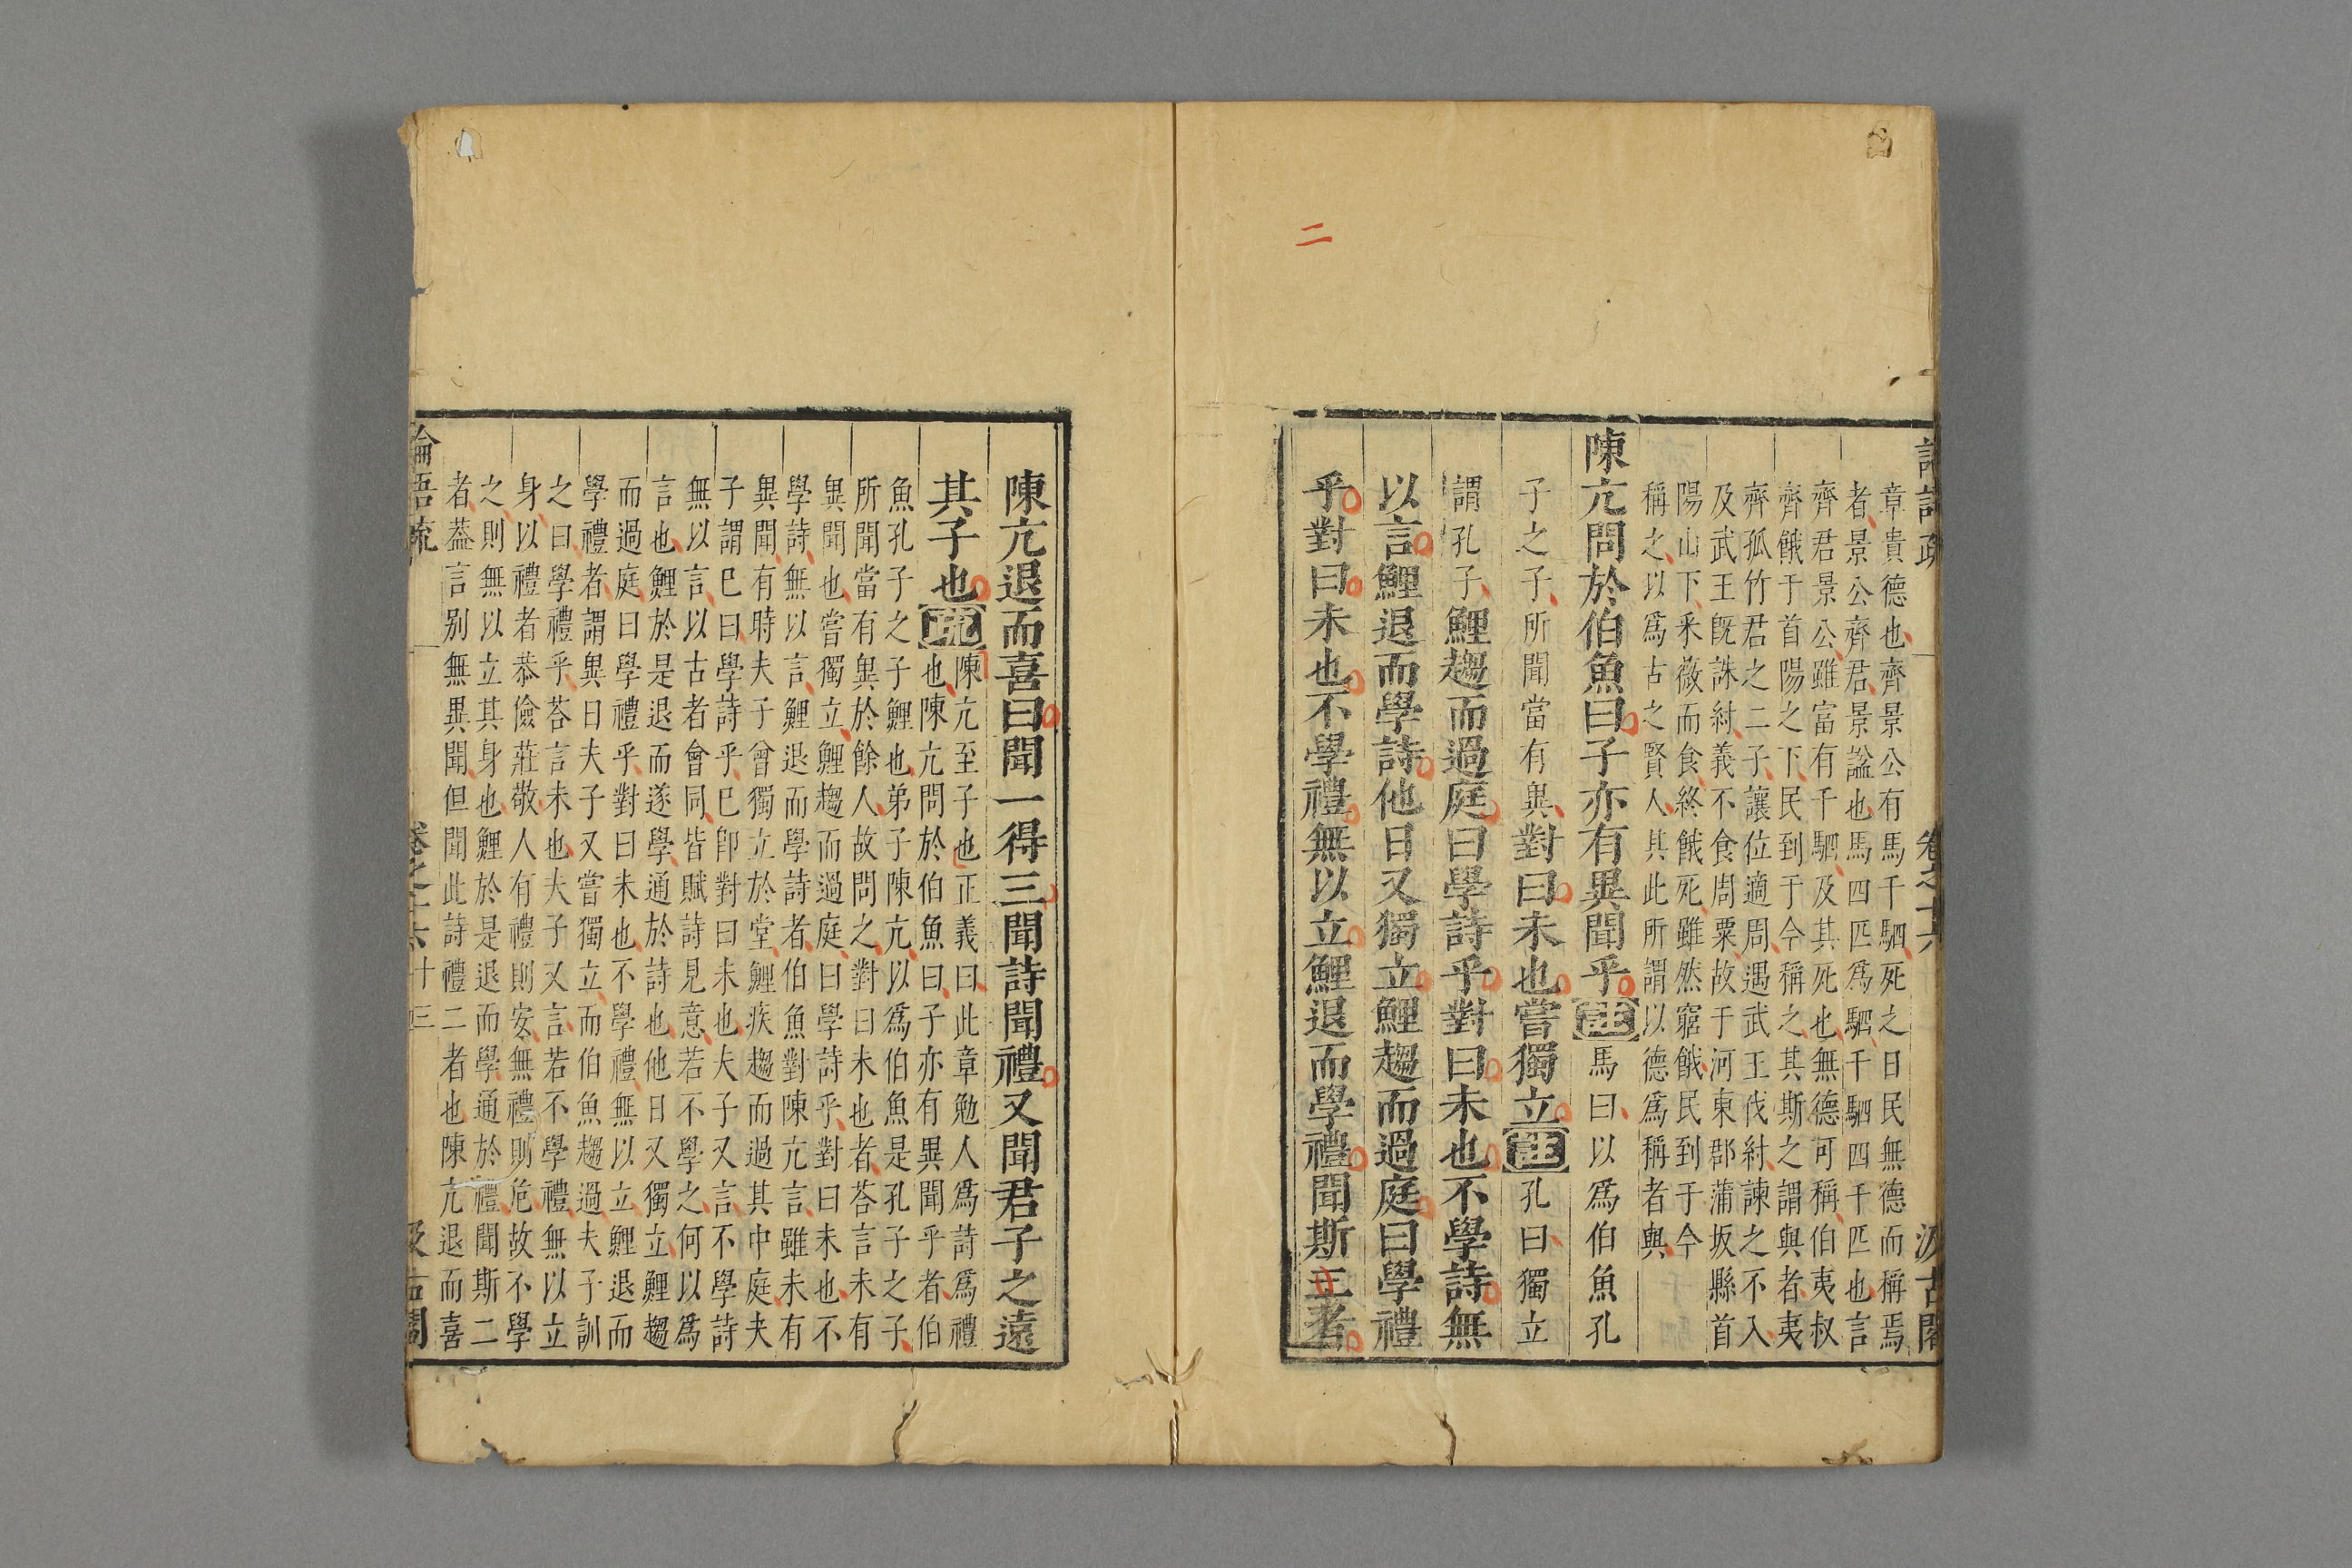 二
章貴德也齊景公有馬千駟死之日民無德而稱焉
者景公齊君景諡也馬四匹爲駟千駟四千匹也言
齊君景公雖富有千駟及其死也無德可稱伯夷叔
齊餓于首陽之下民到于今稱之其斯之謂與者夷
齊孤竹君之二子讓位適周遇武王伐紂諫之不入
及武王旣誅紂義不食周粟故于河東郡蒲坂縣首
陽山下釆薇而食終餓死雖然窮餓民到于今
稱之以爲古之賢人其此所謂以德爲稱者與
陳亢問於伯魚曰子亦有異聞乎註馬曰以爲伯魚孔
子之子所聞當有異對曰未也嘗獨立註孔曰獨立
謂孔子鯉趨而過庭曰學詩乎對曰未也不學詩無
以言鯉退而學詩他日又獨立鯉趨而過庭曰學禮
乎對曰未也不學禮無以立鯉退而學禮聞斯二者
卷之十六
汲古閣
陳亢退而喜曰聞一得三聞詩聞禮又聞君子之遠
其子也疏陳亢至子也正義曰此章勉人爲詩爲禮
也陳亢問於伯魚曰子亦有異聞乎者伯
魚孔子之子鯉也弟子陳亢以爲伯魚是孔子之子
所聞當有異於餘人故問之對曰未也者荅言未有
異聞也嘗獨立鯉趨而過庭曰學詩乎對曰未也不
學詩無以言鯉退而學詩者伯魚對陳亢言雖未有
異聞有時夫子曾獨立於堂鯉疾趨而過其中庭夫
子謂已曰學詩乎已卽對曰未也夫子又言不學詩
無以言以古者會同皆賦詩見意若不學之何以爲
言也鯉於是退而遂學通於詩也他日又獨立鯉趨
而過庭曰學禮乎對曰未也不學禮無以立鯉退而
學禮者謂異日夫子又嘗獨立而伯魚趨過夫子訓
之曰學禮乎荅言未也夫子又言若不學禮無以立
身以禮者恭儉莊敬人有禮則安無禮則危故不學
之則無以立其身也鯉於是退而學通於禮聞斯二
者葢言別無異聞但聞此詩禮二者也陳亢退而喜
論語疏 卷之十六 十三 汲古閣